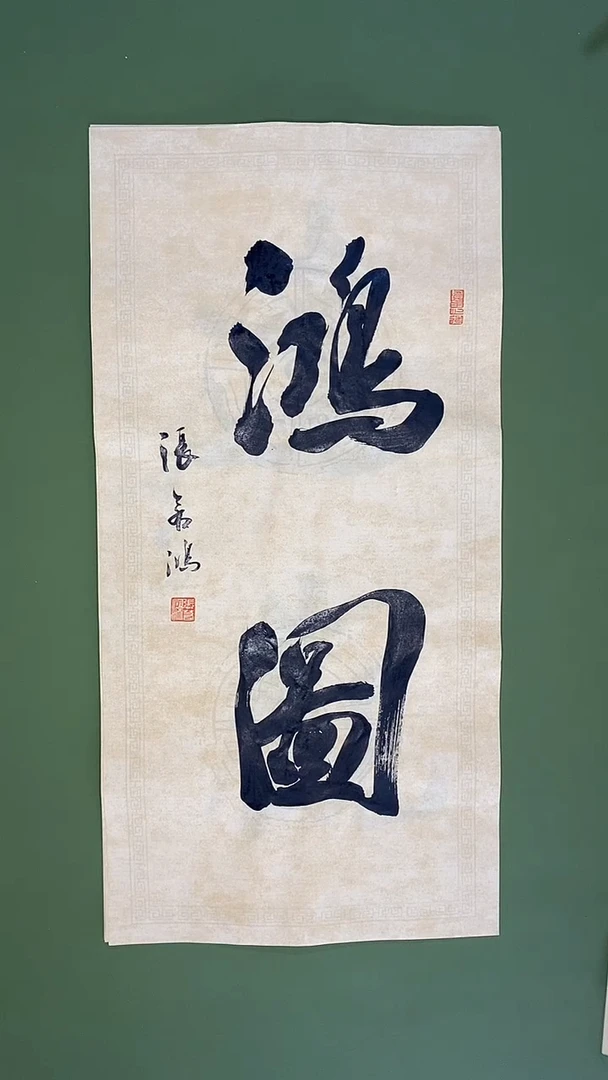 鴻圖
張若鴻